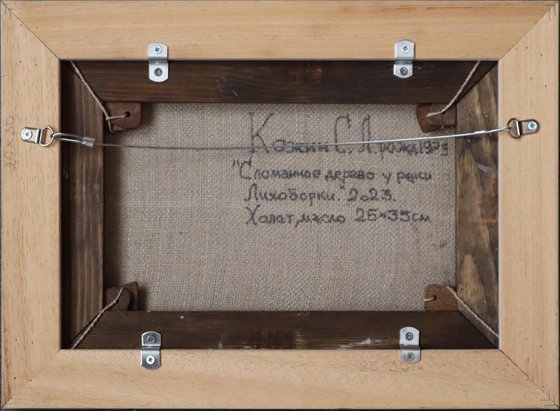 Кожин С. Л. рожд. 1979
"Сломанное дерево у реки
Лихоборки. 2023.
Холст, масло 25×35см
25×35см